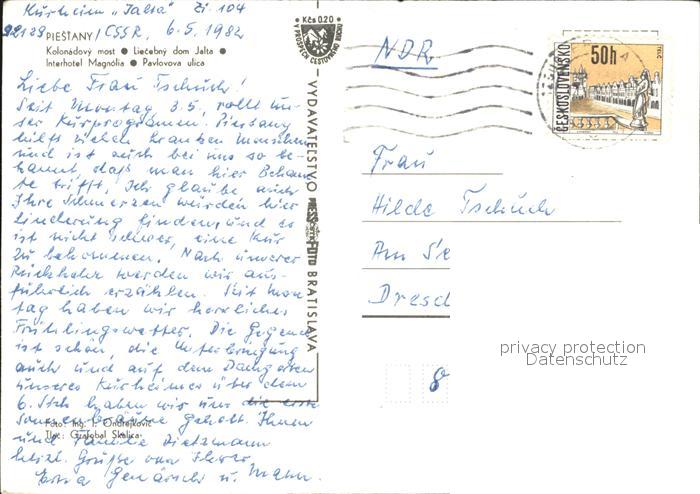 Kurheim "Jalta" Zi. 104
92129 PIEŠŤANY / ČSSR, 6.5.1982
Kolonádový most ● Liečebný dom Jalta ●
Interhotel Magnólia ● Pavlovova ulica
Liebe Frau Tschuch!
Seit Montag 3.5. rollt un-
ser Kurprogramm! Piestany
hilft vielen kranken Menschen
und ist auch bei uns so be-
kannt, daß man hier Bekann-
te trifft. Ich glaube auch
Ihre Schmerzen würden hier
Linderung finden, und es
ist nicht schwer, eine Kur
zu bekommen. Nach unserer
Rückkehr werden wir aus-
führlich erzählen. Seit Mon-
tag haben wir herrliches
Frühlingswetter. Die Gegend
ist schön, die Unterbringung
auch und auf dem Dachgarten
unseres Kurheimes über dem
6. Stck haben wir uns die erste
Sonnenbräune geholt. Ihnen
und Familie Dietzmann
herzl. Grüße von Ihrer
u. Mann.
Foto: Ing. I. Ondrejkovič
Tlač: Grafobal Skalica
Kčs 0.20
V PROSPECH CESTOVNÉHO RUCHU
VYDAVATEĽSTVO
PRESSFOTO
BRATISLAVA
NDR
ČESKOSLOVENSKO
50h
TELČ
Frau
Hilde Tschuch
Am Se
Dresd
8
privacy protection
Datenschutz